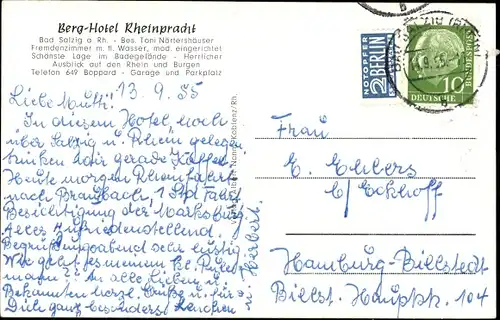 Berg-Hotel Rheinpracht
Bad Salzig a. Rh. - Bes. Toni Nörtershäuser
Fremdenzimmer m. fl. Wasser, mod. eingerichtet
Schönste Lage im Badegelände - Herrlicher
Ausblick auf den Rhein und Burgen
Telefon 649 Boppard - Garage und Parkplatz
13.9.55
Liebe Mutti!
In diesem Hotel, hoch
über Salzig u. Rhein gelegen
trinken wir gerade Kaffee.
Heute morgen Rheinfahrt
nach Braubach, 1 Std Fahrt
Besichtigung der Marksburg
Alles zufriedenstellend.
Begrüßungsabend sehr lustig
Wie geht es meinem kl.
mann?? An alle Lieben u.
Bekannten herzl. Grüße u. für
Dich ganz besonders
Herbert
NOTOPFER
2 BERLIN
STEUERMARKE
DEUTSCHE
BUNDESPOST
10
Frau
E. Ehlers
b/ Eckhoff
Hamburg-Billstedt
Billst. Hauptstr. 104